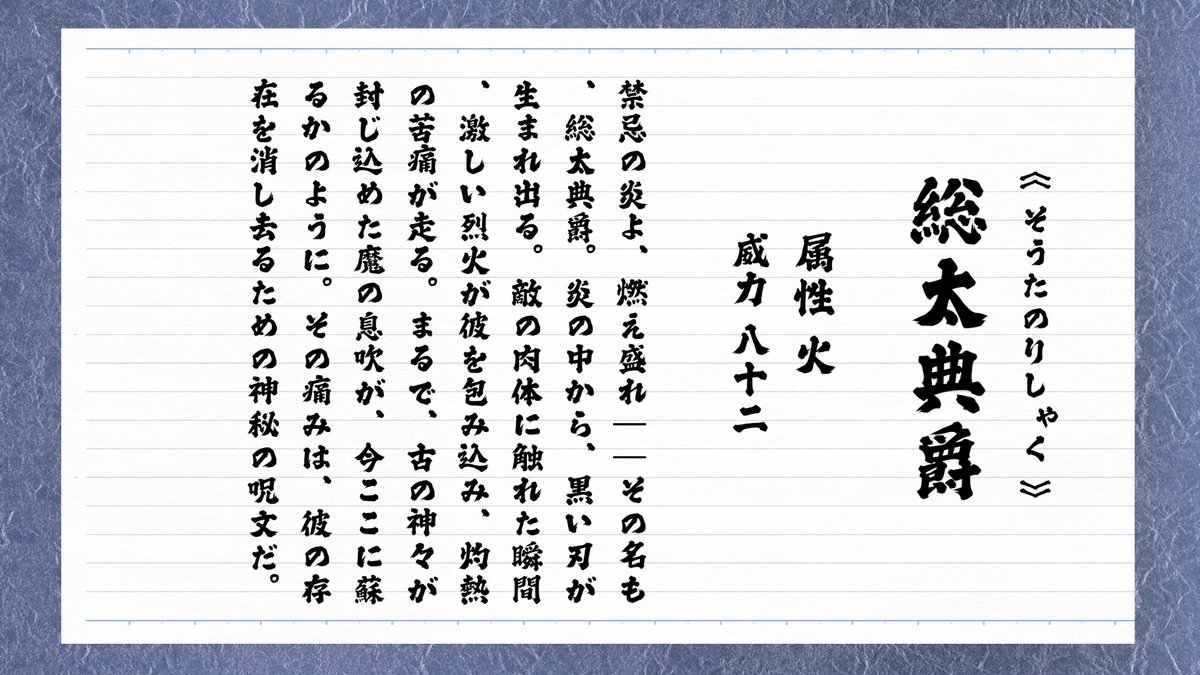 《そうたのりしゃく》
総太典爵
属性 火
威力 八十二
禁忌の炎よ、燃え盛れ――その名も
、総太典爵。炎の中から、黒い刃が
生まれ出る。敵の肉体に触れた瞬間
、激しい烈火が彼を包み込み、灼熱
の苦痛が走る。まるで、古の神々が
封じ込めた魔の息吹が、今ここに蘇
るかのように。その痛みは、彼の存
在を消し去るための神秘の呪文だ。